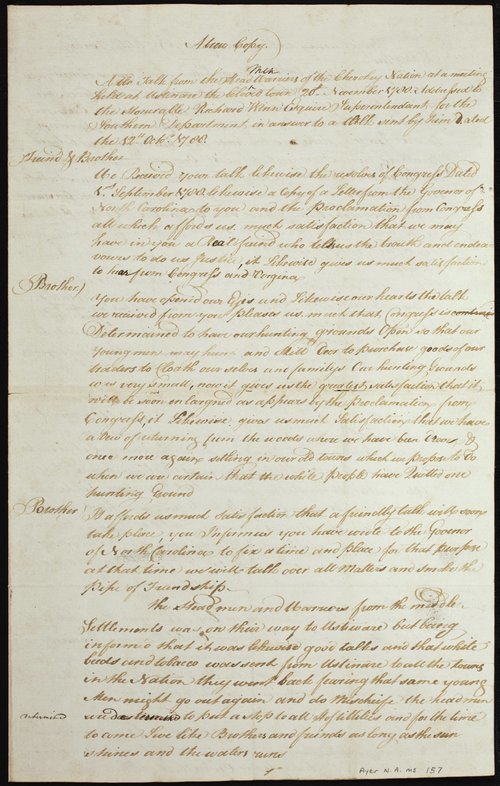 A True Copy.
A Talk from the Head Men Warriors of the Cherokey Nation at a meeting
held at Ustenaree the beloved town 20th November 1788 addressed to
the Honourable Richard Winn Esquire Superintendant for the
Southern Department in answer to a Talk sent by him Dated
the 12th Octr. 1788.
Friend & Brother
We Received your talk likewise the resolves of Congress Dated
1st September 1788 likewise a Copy of a Letter from the Governor of
North Carolina to you and the Proclamation from Congress
all which affords us much satisfaction that we may
have in you a Real friend who tells us the truth and endea
vours to do us Justice, it Likewise gives us much satisfaction
to hear from Congress and Virginia
Brother,
You have opened our Eyes and Likewise our hearts the talk
we received from you pleases us much that Congress is
Determined to have our hunting grounds Open so that our
Young men may hunt and kill Deer to purchase goods of our
traders to Cloath our selves and familys Our hunting Grounds
is very small, now it gives us the greatest satisfaction that it
will be soon enlarged as appears by the proclamation from
Congress, it Likewise gives us much Satisfaction that we have
a view of returning from the woods where we have been &
once more again setting in our old towns which we propose to Do
when we are certain that the white people have Quitted our
hunting Ground
Brother
It affords us much Satisfaction that a friendly talk will soon
take place, you Inform us you have wrote to the Governor
of North Carolina to fix a time and place for that purpose
at that time we will talk over all Matters and smoke the
Pipe of Friendship.
The Head men and Warriours from the middle
Settlements was on their way to Ustenaree but being
inform'd that it was likewise good talks and that white
beads and tobacco was sent from Ustenaree to all the towns
in the Nation they went back fearing that some young
Men might go out again and do Mischief the head men
were determined to put a stop to all Hostilities and for the time
to come Live like Brothers and friends as long as the sun
shines and the waters runs
Ayer N.A. ms 157